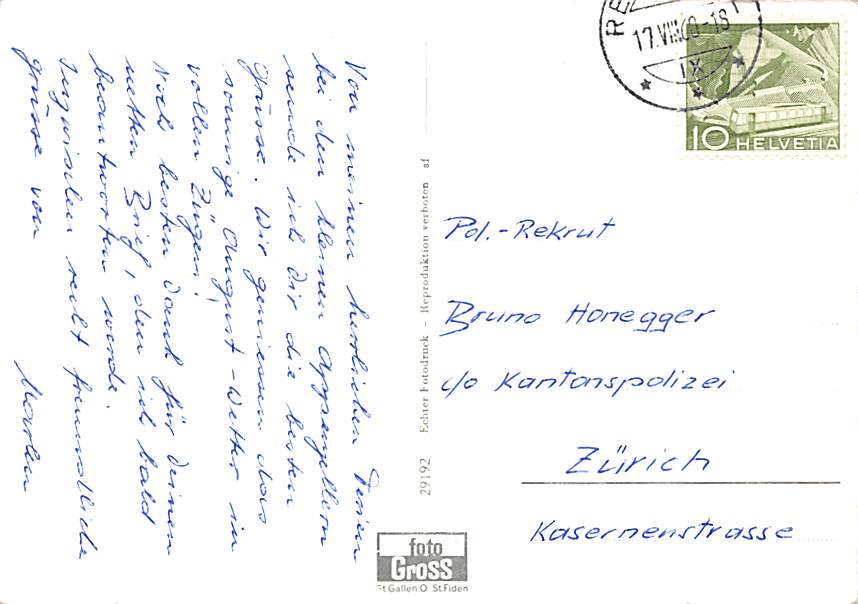 Von meinen herrlichen Ferien
bei den kleinen Appenzellern
sende ich Dir die besten
Grüsse. Wir geniessen das
sonnige August-Wetter in
vollen Zügen!
Noch besten Dank für Deinen
netten Brief, den ich bald
beantworten werde.
Inzwischen recht freundliche
Grüsse von
Marlen
29192 Echter Fotodruck – Reproduktion verboten sf
foto
Gross
St Gallen O St.Fiden
17.VIII.60-18
IX
10 HELVETIA
Pol.-Rekrut
Bruno Honegger
c/o Kantonspolizei
Zürich
Kasernenstrasse